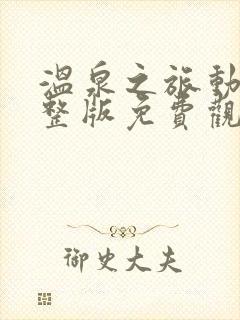 溫泉之旅動
整版免費觀
御史大夫